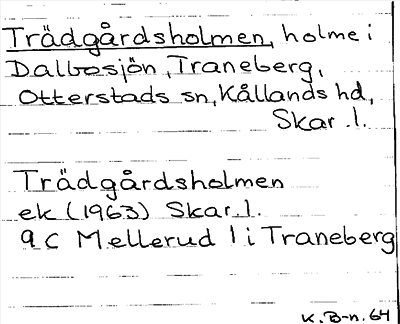 Trädgårdsholmen, holme i
Dalbosjön, Traneberg,
Otterstads sn, Kållands hd,
Skar. l.
Trädgårdsholmen
ek (1963) Skar. l.
9 C Mellerud l i Traneberg
K. B-n. 64